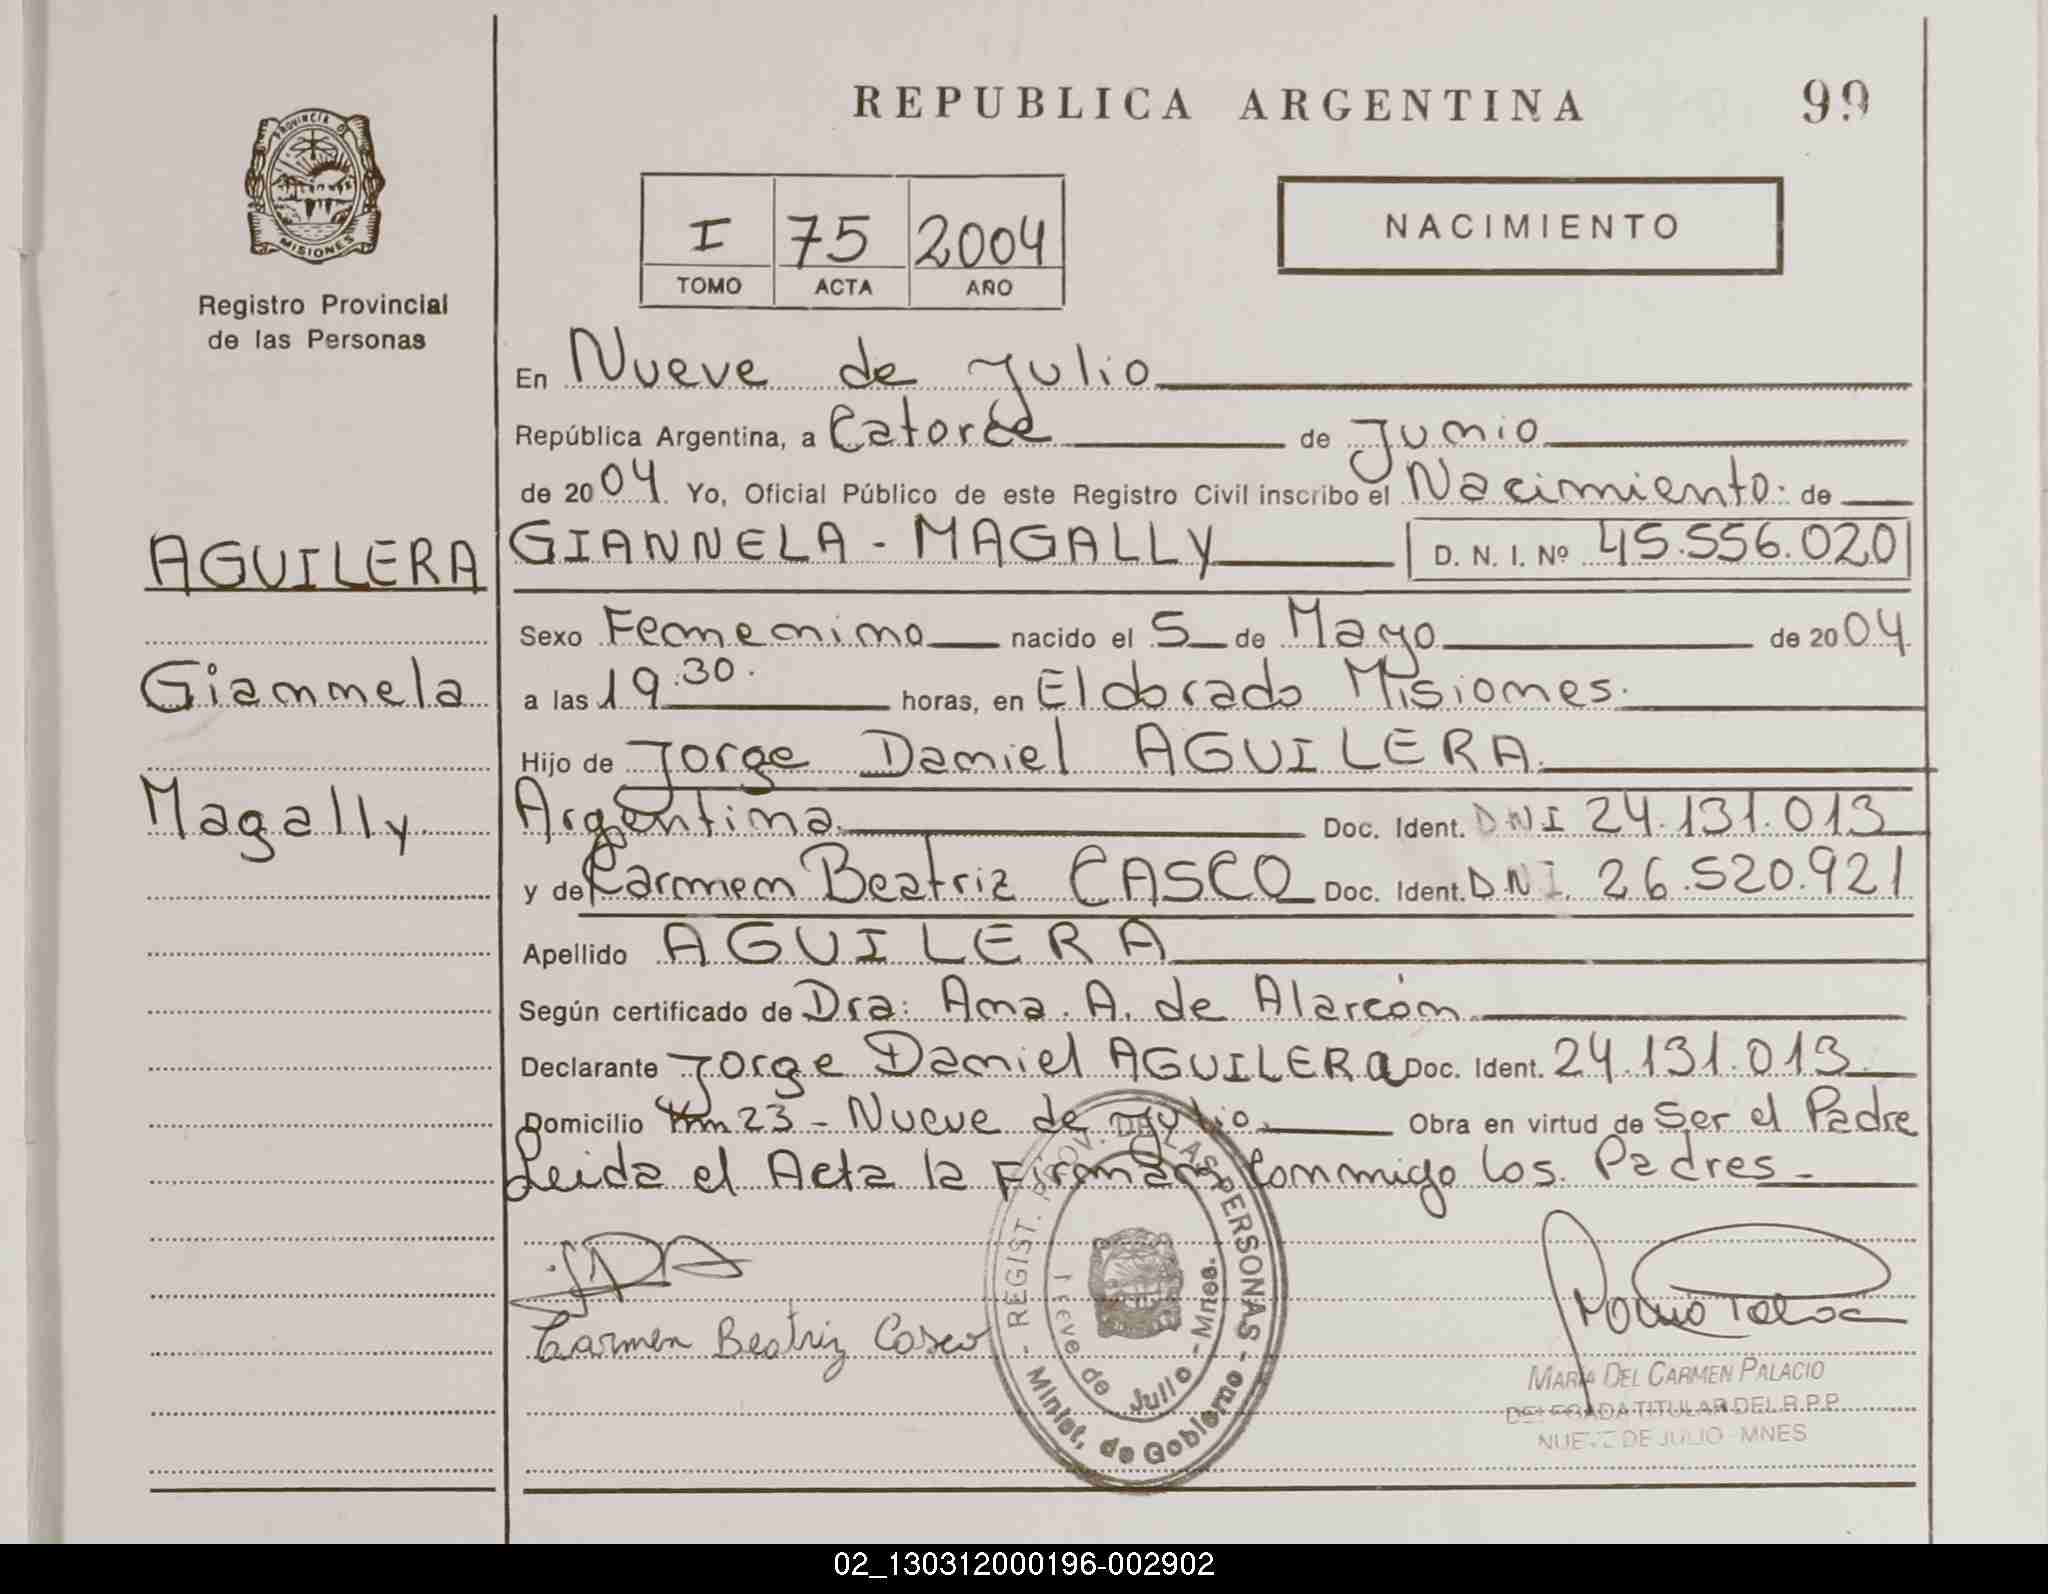 REPUBLICA ARGENTINA
99
PROVINCIA DE
MISIONES
Registro Provincial
de las Personas
I 75 2004
TOMO ACTA AÑO
NACIMIENTO
En Nueve de Julio
República Argentina, a Catorce de Junio
de 2004. Yo, Oficial Público de este Registro Civil inscribo el Nacimiento. de
AGUILERA
GIANNELA - MAGALLY D. N. I. Nº 45.556.020
Sexo Femenino nacido el 5 de Mayo de 2004
Giannela
a las 19.30. horas, en Eldorado Misiones.
Hijo de Jorge Daniel AGUILERA.
Magally.
Argentina. Doc. Ident. DNI 24.131.013
y de Carmen Beatriz CASCO Doc. Ident. DNI. 26.520.921
Apellido AGUILERA
Según certificado de Dra: Ana. A. de Alarcón.
Declarante Jorge Daniel AGUILERA Doc. Ident. 24.131.013.
Domicilio Km 23 - Nueve de Julio. Obra en virtud de Ser el Padre
Leida el Acta la Firman Conmigo los. Padres -
Carmen Beatriz Casco
- REGIST. PROV. DE LAS PERSONAS -
Minist. de Gobierno
de Julio - Mnes.
MARÍA DEL CARMEN PALACIO
DELEGADA TITULAR DEL R.P.P.
NUEVE DE JULIO - MNES
02_130312000196-002902